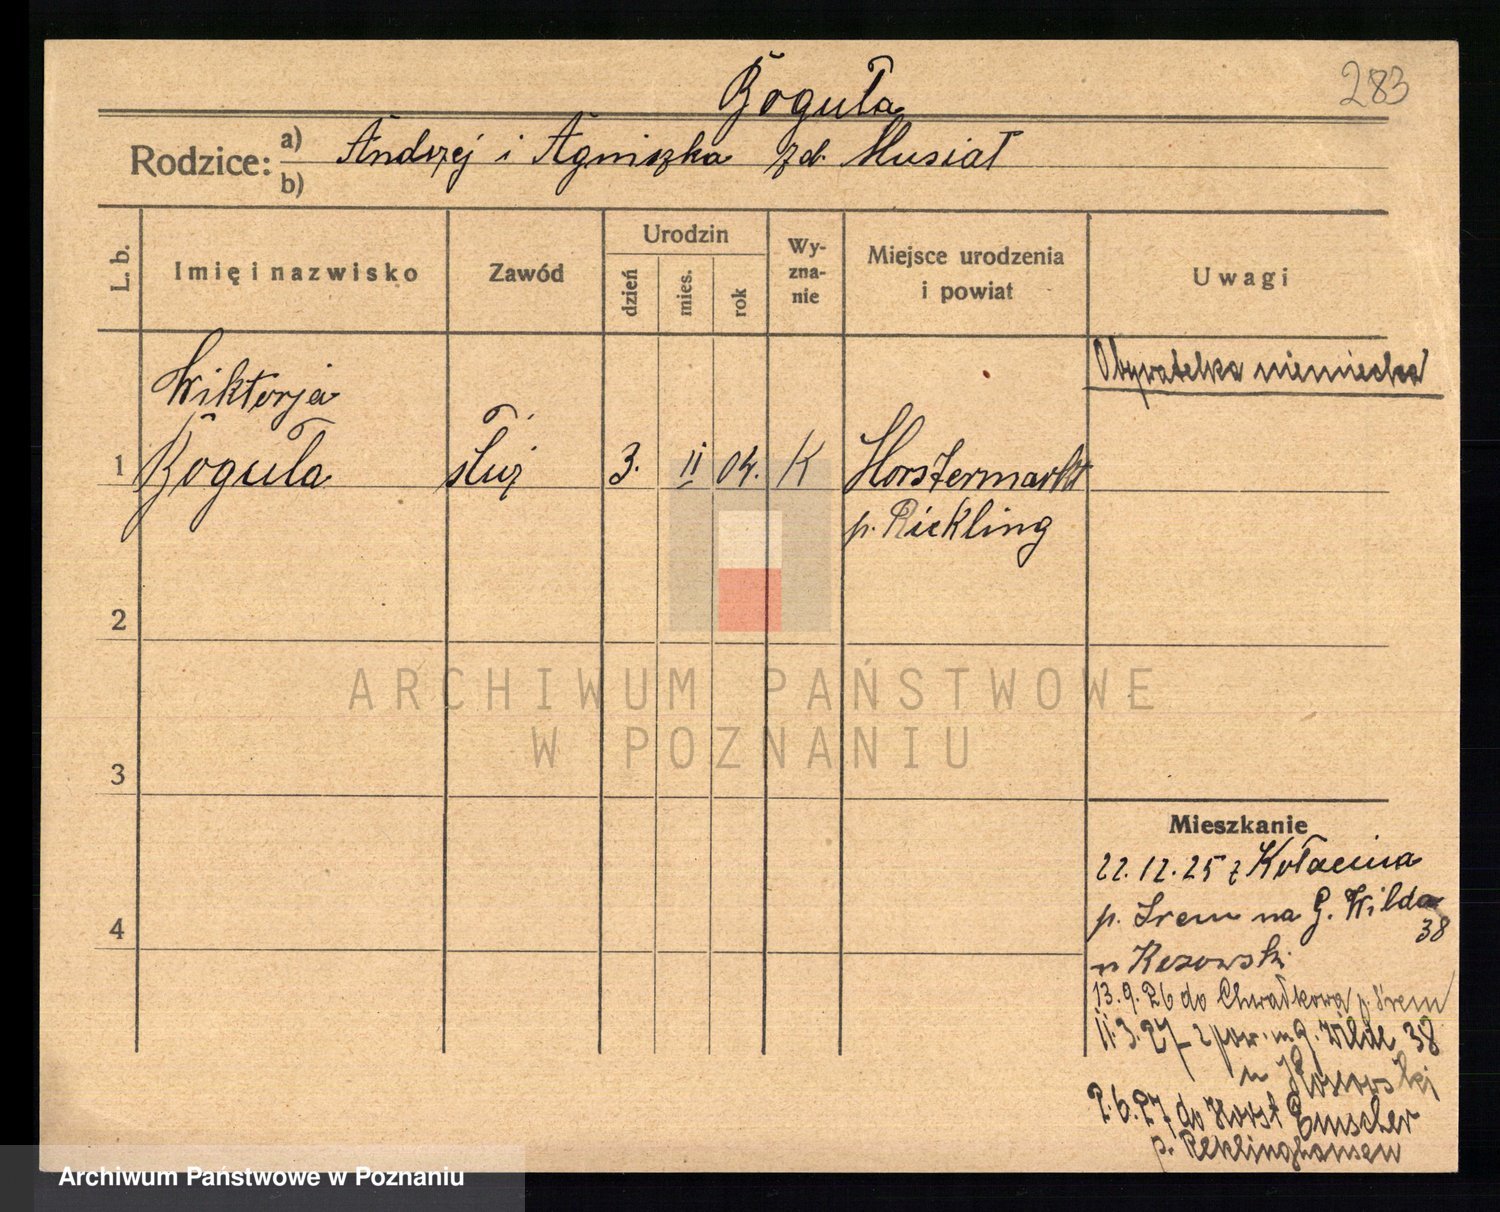 283
Boguła
Rodzice: a) Andrzej i Agniszka zd. Musiał
b)
L. b.
Imię i nazwisko
Zawód
Urodzin
dzień
mies.
rok
Wy-
zna-
nie
Miejsce urodzenia
i powiat
Uwagi
Obywatelka niemiecka
Wiktorja
1 Boguła służ 3. II 04. K Horstermarkt
p. Rickling
2
3
4
Mieszkanie
22.12.25 z Kołacina
p. Śrem na G. Wilda
38
u Rezowski
13.9.26 do Chwałkowa p. Śrem
11.3.27 z pow. na G. Wilde 38
u
2.6.27 do Horst Emscher
p. Reklinghausen
ARCHIWUM PAŃSTWOWE
W POZNANIU
Archiwum Państwowe w Poznaniu